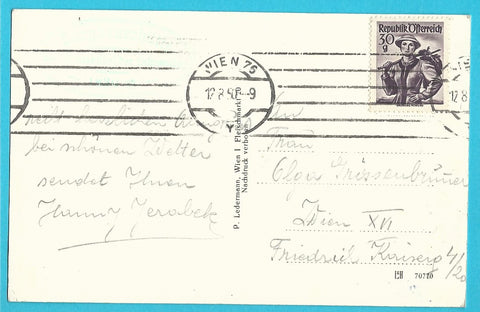 Republik Österreich
30
g
WIEN 75
12.8.50-9
Y
recht herzlichen
bei schönen Wetter
sendet Ihnen
Hanny Jerabek
P. Ledermann, Wien I Fleischmarkt
Nachdruck verboten
Frau
Olga Grissenbrunner
Wien XVI
Friedrich Kaiserg 4/20
70720